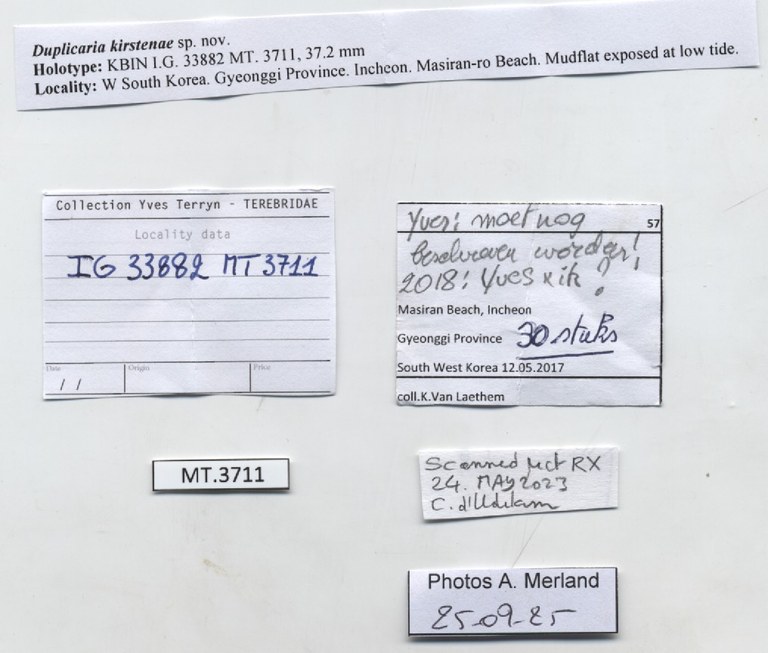 Duplicaria kirstenae sp. nov.
Holotype: KBIN I.G. 33882 MT. 3711, 37.2 mm
Locality: W South Korea. Gyeonggi Province. Incheon. Masiran-ro Beach. Mudflat exposed at low tide.
Collection Yves Terryn - TEREBRIDAE
Locality data
IG 33882 MT 3711
Date
Origin
Price
/ /
57
Yves: moet nog
beschreven worden!
2018: Yves x ik ? !
Masiran Beach, Incheon
Gyeonggi Province 30 stuks
South West Korea 12.05.2017
coll.K.Van Laethem
MT.3711
Scanned µct RX
24. MAY 2023
C. d'Udekem
Photos A. Merland
25-09-25